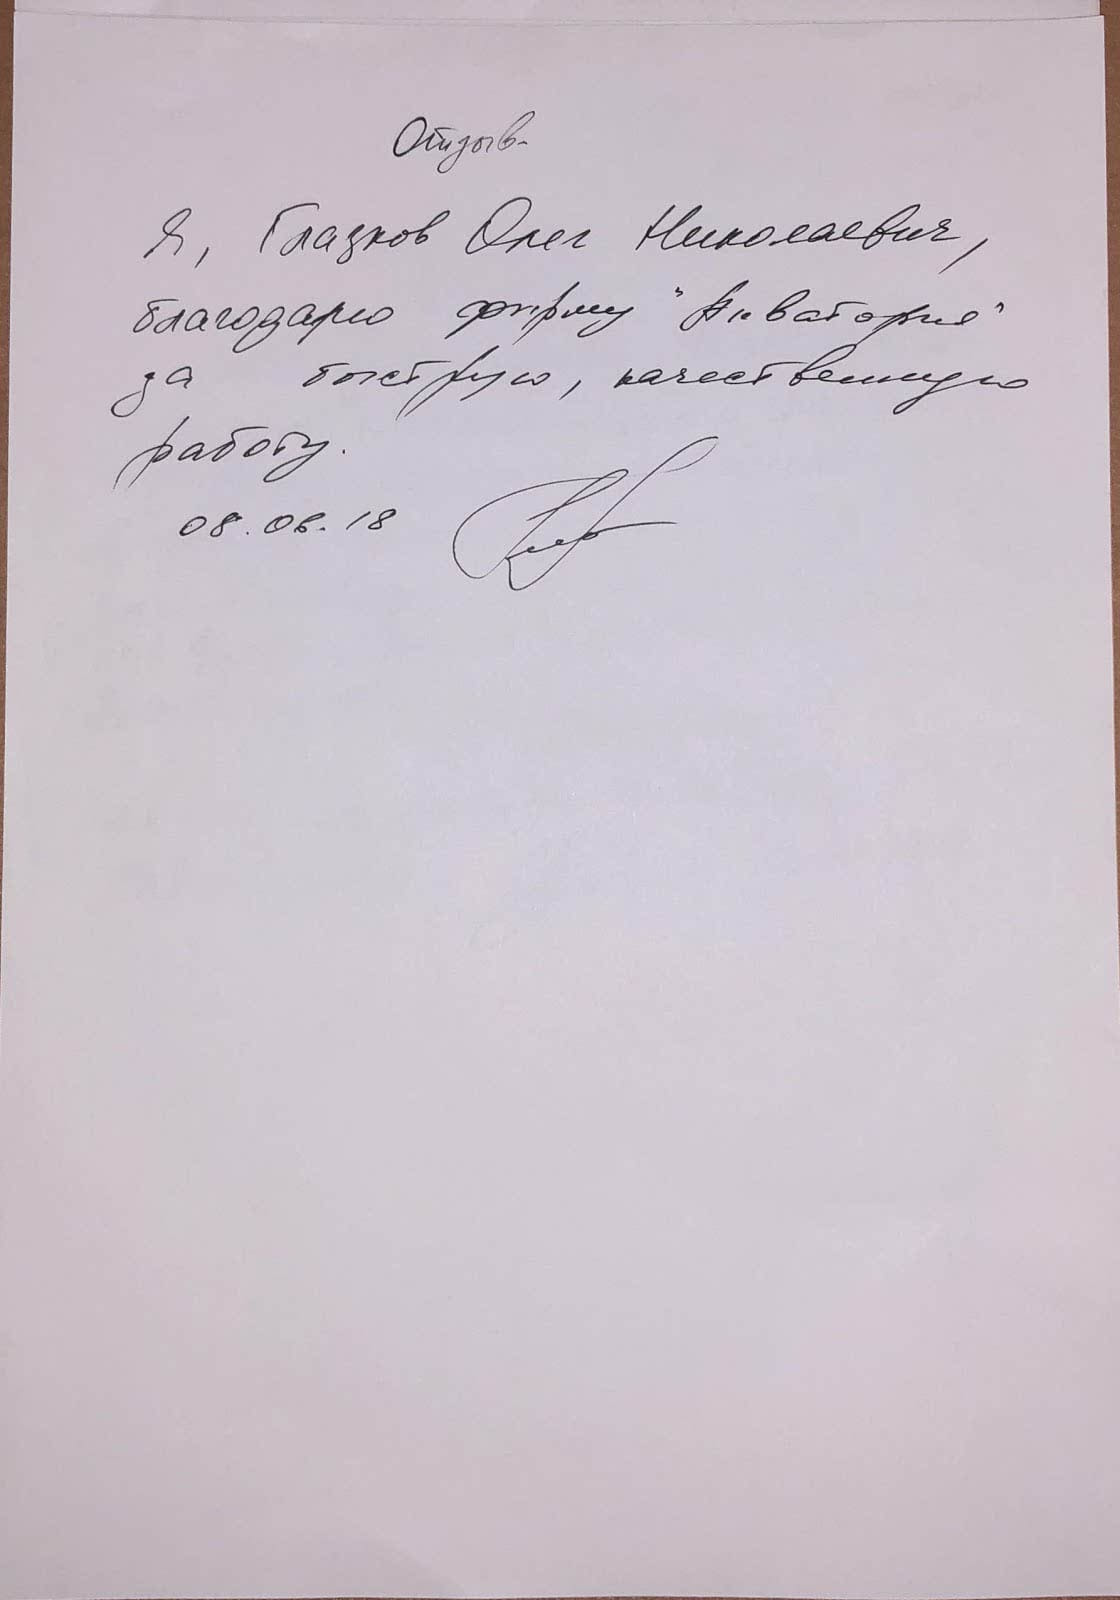 Отзыв.
Я, Глазков Олег Николаевич,
благодарю фирму "Акватория"
за быструю, качественную
работу.
08.06.18